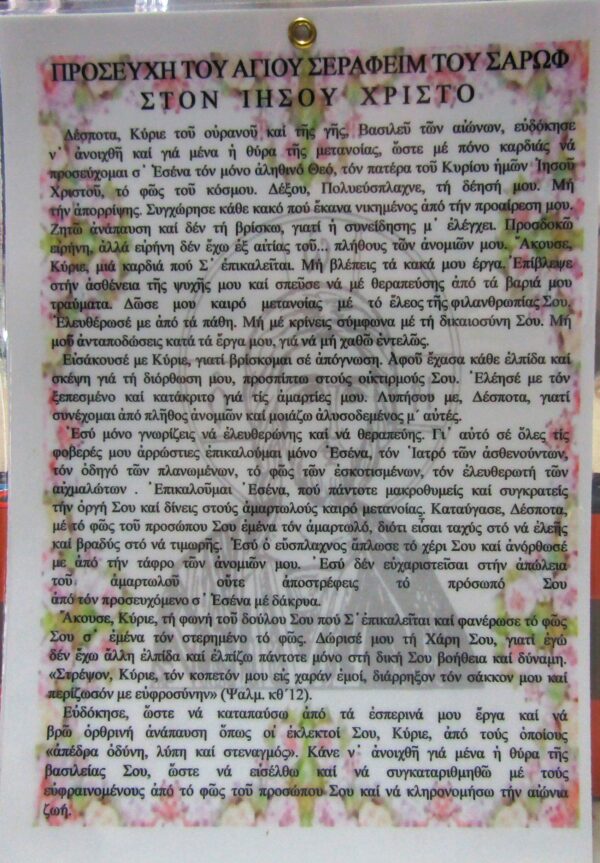 ΠΡΟΣΕΥΧΗ ΤΟΥ ΑΓΙΟΥ ΣΕΡΑΦΕΙΜ ΤΟΥ ΣΑΡΩΦ
ΣΤΟΝ ΙΗΣΟΥ ΧΡΙΣΤΟ
Δέσποτα, Κύριε τοῦ οὐρανοῦ καί τῆς γῆς, Βασιλεῦ τῶν αἰώνων, εὐδόκησε
ν᾿ ἀνοιχθῆ καί γιά μένα ἡ θύρα τῆς μετανοίας, ὥστε μέ πόνο καρδιᾶς νά
προσεύχομαι σ᾿ Ἐσένα τόν μόνο ἀληθινό Θεό, τόν πατέρα τοῦ Κυρίου ἡμῶν Ἰησοῦ
Χριστοῦ, τό φῶς τοῦ κόσμου. Δέξου, Πολυεύσπλαχνε, τή δέησή μου. Μή
τήν ἀπορρίψης. Συγχώρησε κάθε κακό πού ἔκανα νικημένος ἀπό τήν προαίρεση μου.
Ζητῶ ἀνάπαυση καί δέν τή βρίσκω, γιατί ἡ συνείδησης μ᾿ ἐλέγχει. Προσδοκῶ
εἰρήνη, ἀλλά εἰρήνη δέν ἔχω ἐξ αἰτίας τοῦ... πλήθους τῶν ἀνομιῶν μου. Ἄκουσε,
Κύριε, μιά καρδιά πού Σ᾿ ἐπικαλεῖται. Μή βλέπεις τά κακά μου ἔργα. Ἐπίβλεψε
στήν ἀσθένεια τῆς ψυχῆς μου καί σπεῦσε νά μέ θεραπεύσης ἀπό τά βαριά μου
τραύματα. Δῶσε μου καιρό μετανοίας μέ τό ἔλεος τῆς φιλανθρωπίας Σου.
Ἐλευθέρωσέ με ἀπό τά πάθη. Μή μέ κρίνεις σύμφωνα μέ τή δικαιοσύνη Σου. Μή
μοῦ ἀνταποδώσεις κατά τά ἔργα μου, γιά νά μή χαθῶ ἐντελῶς.
Εἰσάκουσέ με Κύριε, γιατί βρίσκομαι σέ ἀπόγνωση. Ἀφοῦ ἔχασα κάθε ἐλπίδα καί
σκέψη γιά τή διόρθωση μου, προσπίπτω στούς οἰκτιρμούς Σου. Ἐλέησέ με τόν
ξεπεσμένο καί κατάκριτο γιά τίς ἁμαρτίες μου. Λυπήσου με, Δέσποτα, γιατί
συνέχομαι ἀπό πλῆθος ἀνομιῶν καί μοιάζω ἁλυσοδεμένος μ᾿ αὐτές.
Ἐσύ μόνο γνωρίζεις νά ἐλευθερώνης καί νά θεραπεύης. Γι᾿ αὐτό σέ ὅλες τίς
φοβερές μου ἀρρώστιες ἐπικαλοῦμαι μόνο Ἐσένα, τόν Ἰατρό τῶν ἀσθενούντων,
τόν ὁδηγό τῶν πλανωμένων, τό φῶς τῶν ἐσκοτισμένων, τόν ἐλευθερωτή τῶν
αἰχμαλώτων . Ἐπικαλοῦμαι Ἐσένα, πού πάντοτε μακροθυμεῖς καί συγκρατεῖς
τήν ὀργή Σου καί δίνεις στούς ἁμαρτωλούς καιρό μετανοίας. Καταύγασε, Δέσποτα,
μέ τό φῶς τοῦ προσώπου Σου ἐμένα τόν ἁμαρτωλό, διότι εἶσαι ταχύς στό νά ἐλεῆς
καί βραδύς στό νά τιμωρῆς. Ἐσύ ὁ εὔσπλαχνος ἅπλωσε τό χέρι Σου καί ἀνόρθωσέ
με ἀπό τήν τάφρο τῶν ἀνομιῶν μου. Ἐσύ δέν εὐχαριστεῖσαι στήν ἀπώλεια
τοῦ ἁμαρτωλοῦ οὔτε ἀποστρέφεις τό πρόσωπό Σου
ἀπό τόν προσευχόμενο σ᾿ Ἐσένα μέ δάκρυα.
Ἄκουσε, Κύριε, τή φωνή τοῦ δούλου Σου πού Σ᾿ ἐπικαλεῖται καί φανέρωσε τό φῶς
Σου σ᾿ ἐμένα τόν στερημένο τό φῶς. Δώρισέ μου τή Χάρη Σου, γιατί ἐγώ
δέν ἔχω ἄλλη ἐλπίδα καί ἐλπίζω πάντοτε μόνο στή δική Σου βοήθεια καί δύναμη.
«Στρέψον, Κύριε, τόν κοπετόν μου εἰς χαράν ἐμοί, διάρρηξον τόν σάκκον μου καί
περίζωσόν με εὐφροσύνην» (Ψαλμ. κθ΄12).
Εὐδόκησε, ὥστε νά καταπαύσω ἀπό τά ἑσπερινά μου ἔργα καί νά
βρῶ ὀρθρινή ἀνάπαυση ὅπως οἱ ἐκλεκτοί Σου, Κύριε, ἀπό τούς ὁποίους
«ἀπέδρα ὀδύνη, λύπη καί στεναγμός». Κάνε ν᾿ ἀνοιχθῆ γιά μένα ἡ θύρα τῆς
βασιλείας Σου, ὥστε νά εἰσέλθω καί νά συγκαταριθμηθῶ μέ τούς
εὐφραινομένους ἀπό τό φῶς τοῦ προσώπου Σου καί νά κληρονομήσω τήν αἰώνια
ζωή.